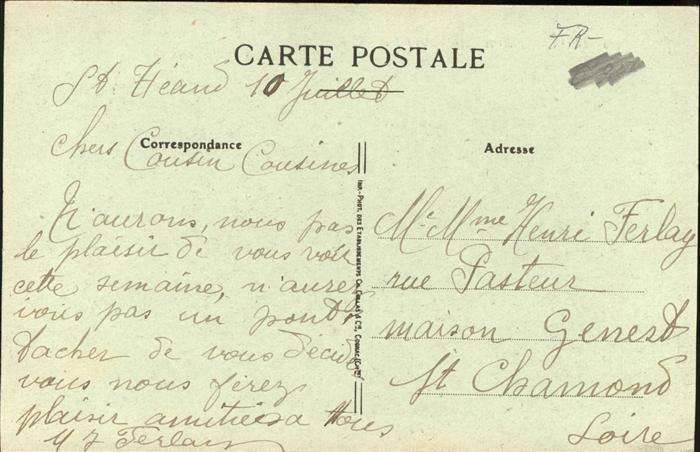 FR-
CARTE POSTALE
St Héand 10 Juillet
Correspondance
chers Cousin Cousines
N'aurons, nous pas
le plaisir de vous voir
cette semaine, n'aurez
vous pas un pont,
tacher de vous décider
vous nous ferez
plaisir amitiés a tous
Ferlay
IMP.-PHOT. DES ETABLISSEMENTS CH. COLLAS & Cie, COGNAC
Adresse
Mr Mme Henri Ferlay
rue Pasteur
maison Genest
St Chamond
Loire